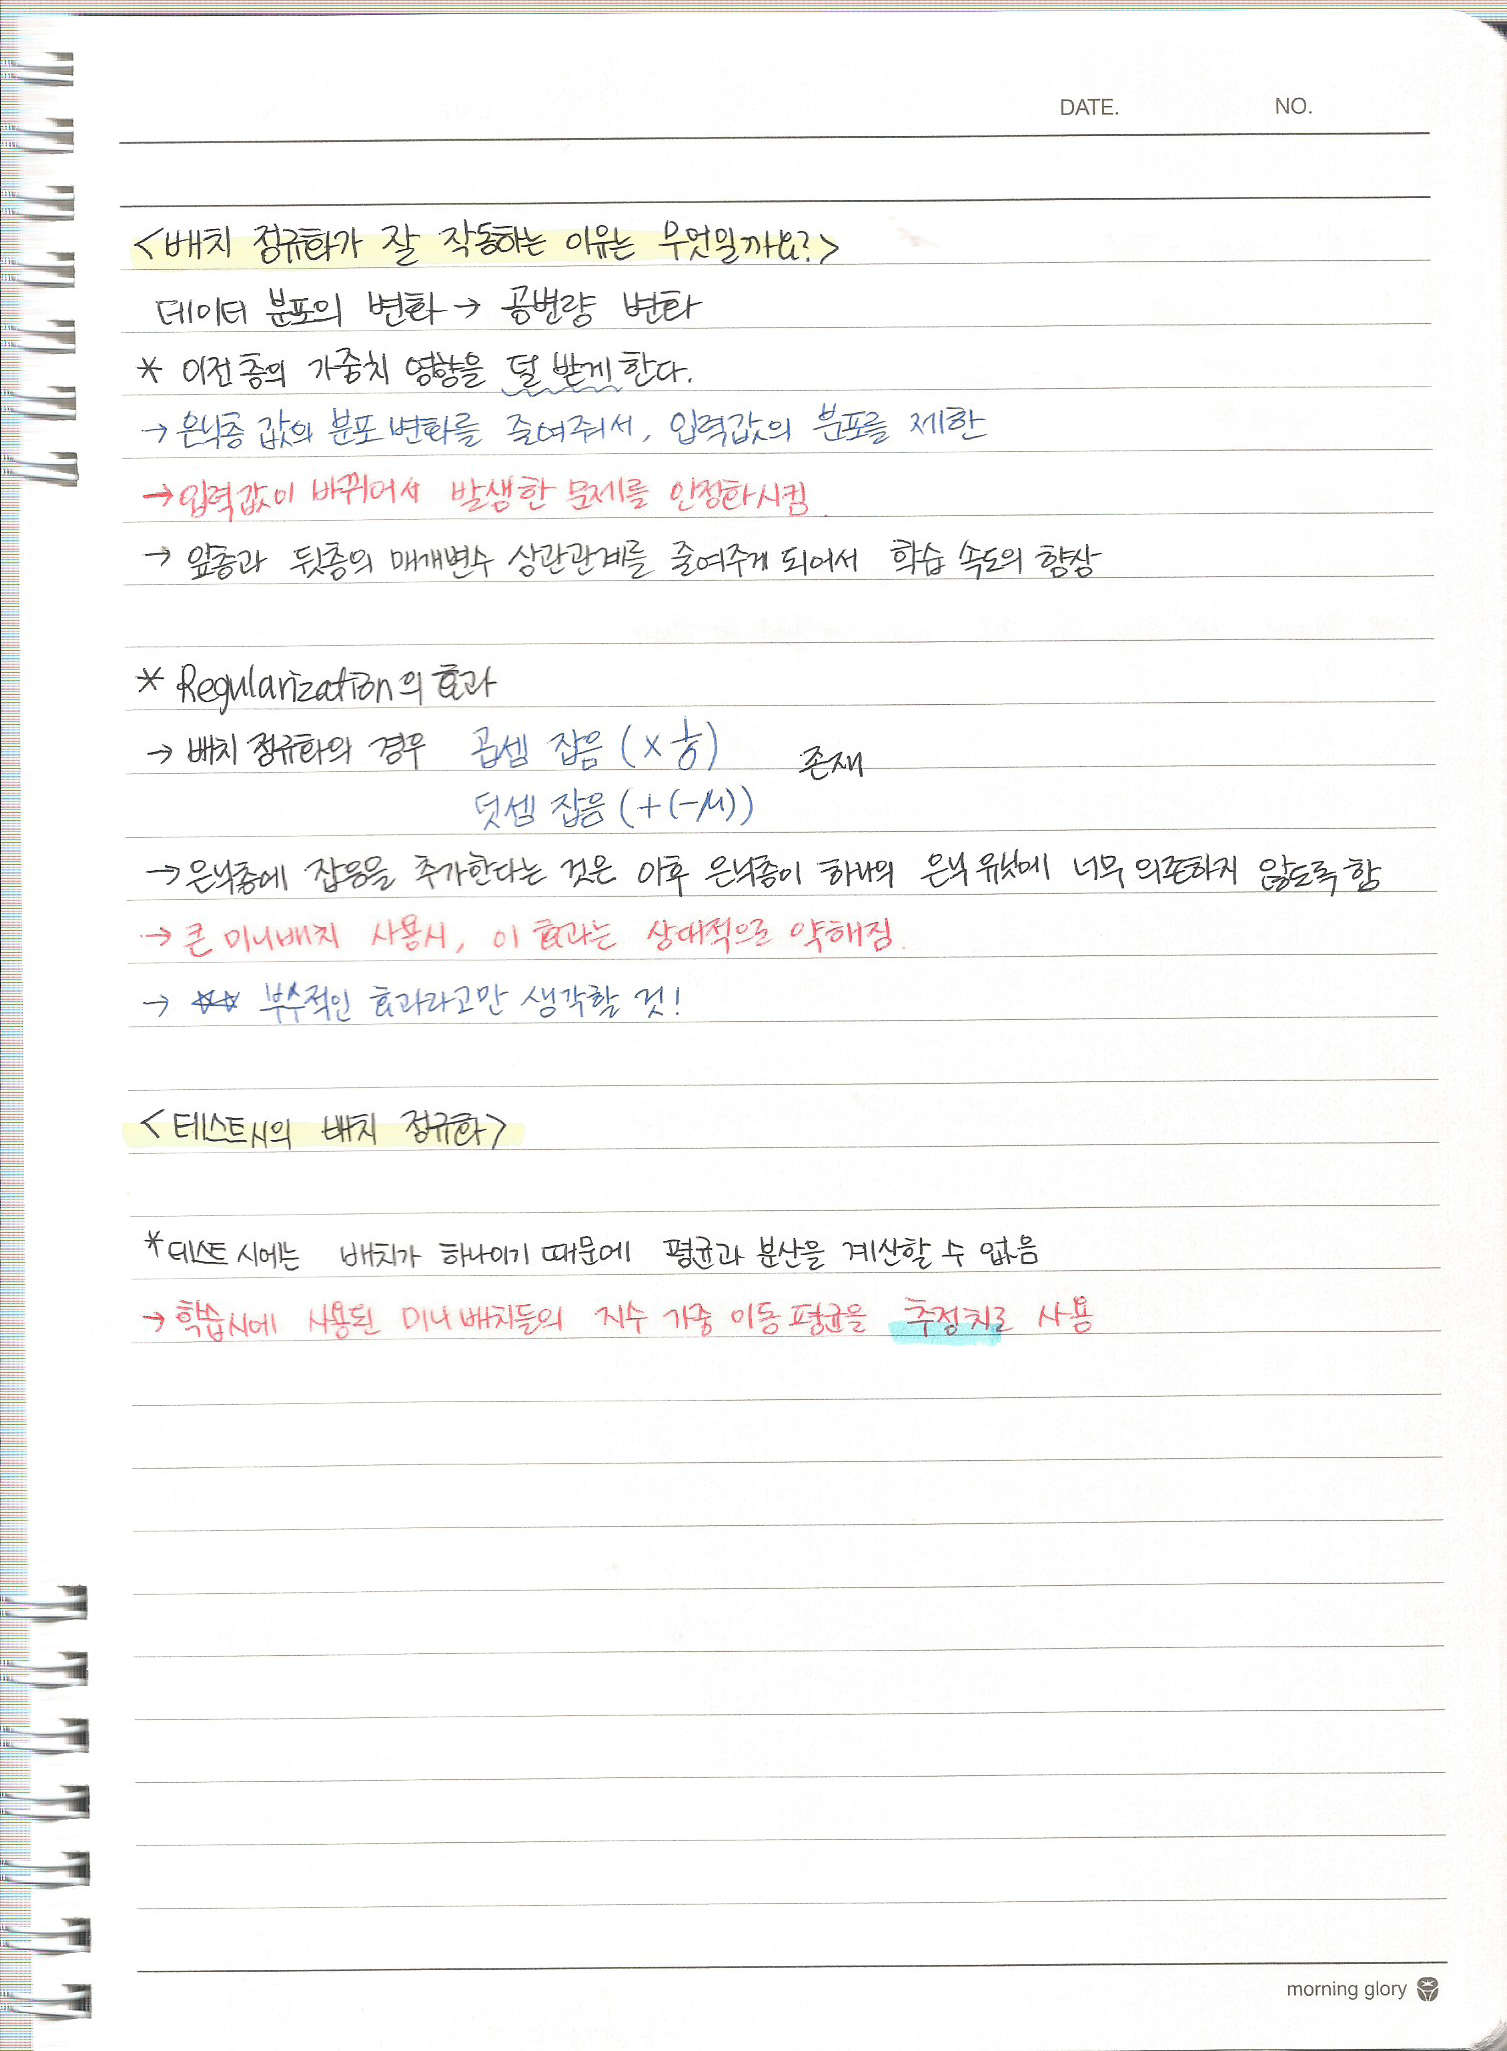 DATE. NO.
<배치 정규화가 잘 작동하는 이유는 무엇일까요?>
데이터 분포의 변화 → 공변량 변화
* 이전층의 가중치 영향을 덜 받게 한다.
→ 은닉층 값의 분포 변화를 줄여줘서, 입력값의 분포를 제한
→ 입력값이 바뀌어서 발생한 문제를 안정화시킴
→ 앞층과 뒷층의 매개변수 상관관계를 줄여주게 되어서 학습 속도의 향상
* Regularization의 효과
→ 배치 정규화의 경우 곱셈 잡음 (× 1/σ) 존재
덧셈 잡음 (+(-μ))
→ 은닉층에 잡음을 추가한다는 것은 이후 은닉층이 하나의 은닉 유닛에 너무 의존하지 않도록 함
→ 큰 미니배치 사용시, 이 효과는 상대적으로 약해짐.
→ ☆☆ 부수적인 효과라고만 생각할 것!
<테스트시의 배치 정규화>
* 테스트 시에는 배치가 하나이기 때문에 평균과 분산을 계산할 수 없음
→ 학습시에 사용된 미니배치들의 지수 가중 이동 평균을 추정치로 사용
morning glory